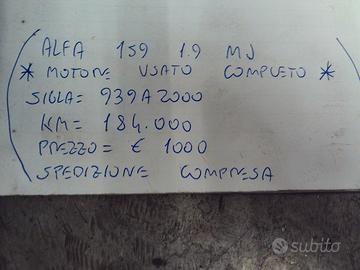 ALFA 159 1.9 MJ
* MOTORE USATO COMPLETO *
SIGLA = 939A2000
KM = 184.000
PREZZO = € 1000
SPEDIZIONE COMPRESA
subito